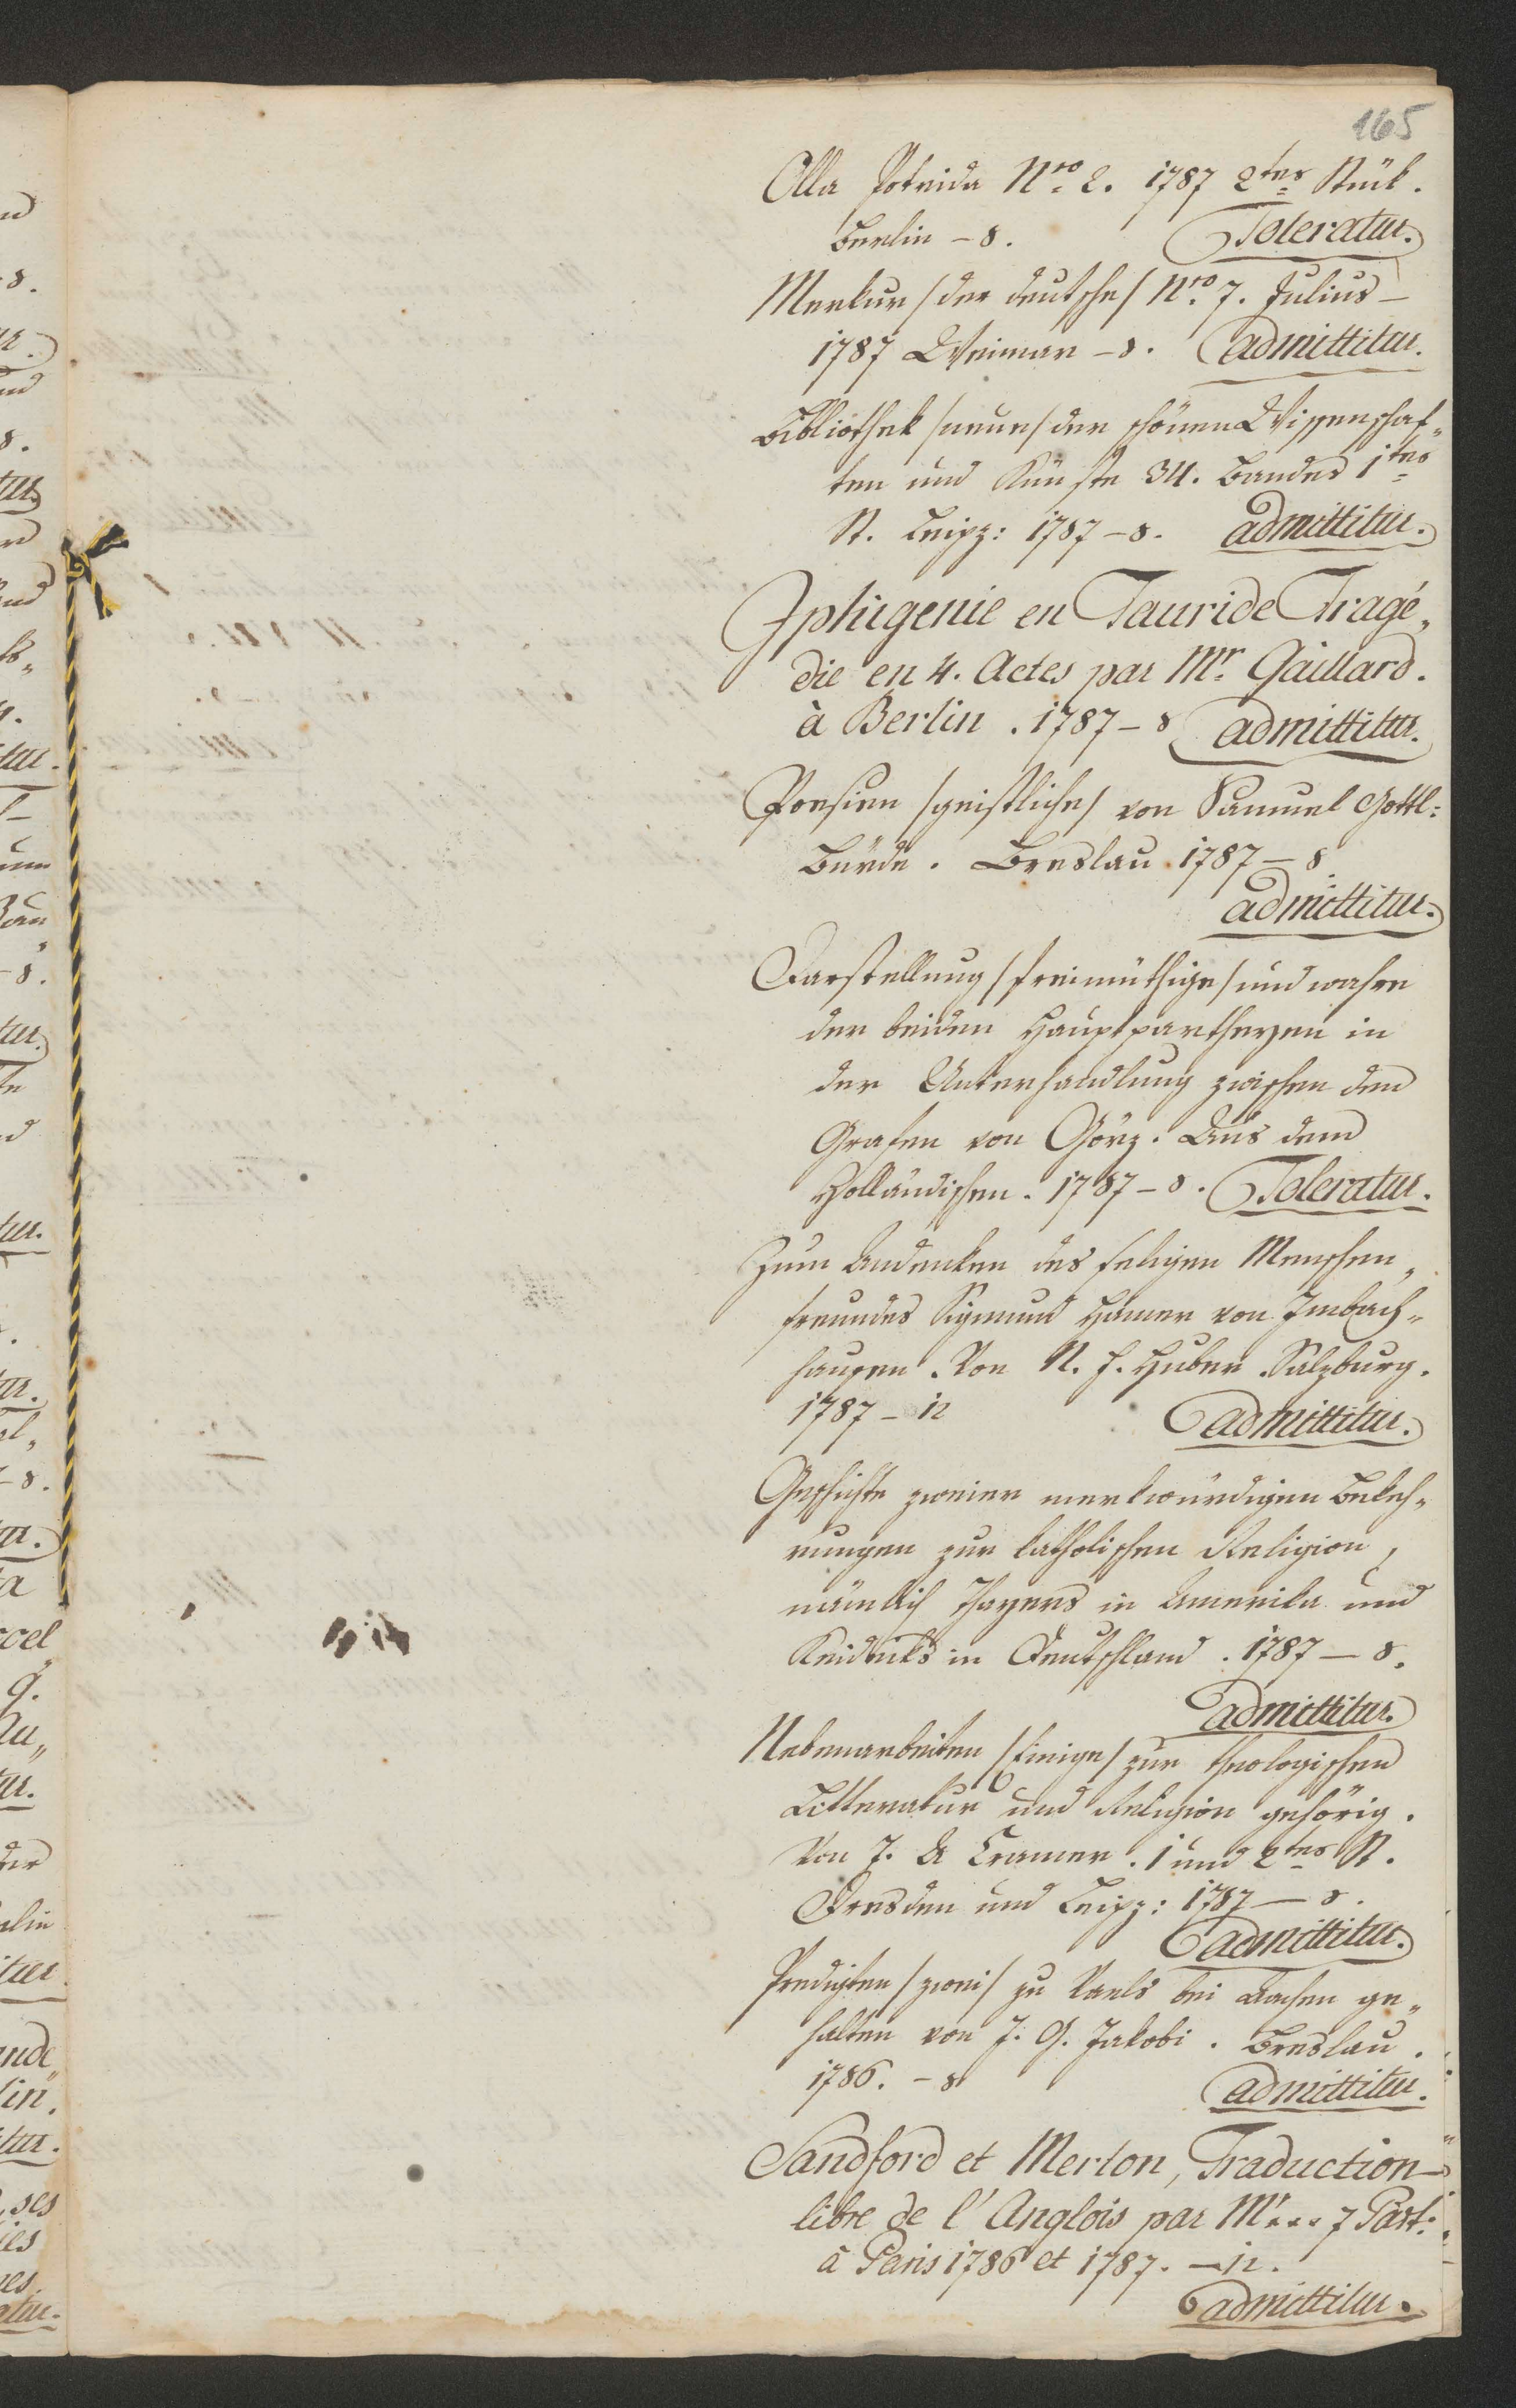 165
Olla Potrida Nro. 2. 1787 2tes Stük.
Berlin – 8. Toleratur.
Merkur /der deutsche/ Nro. 7. Julius –
1787 Weimar – 8. admittitur.
Bibliothek /neue/ der schönen Wissenschaf„
ten und Künste 34. Bandes 1tes
St. Leipz: 1787 – 8. admittitur.
Iphigenie en Tauride Tragé„
die en 4. Actes par Mr. Gaillard.
à Berlin . 1787 – 8 admittitur.
Poesien /geistliche/ von Samuel Gottl:
Bürde . Breslau 1787 – 8.
admittitur.
Darstellung /freimüthige/ und wahre
der beiden Hauptpartheyen in
der Unterhandlung zwischen dem
Grafen von Görz. Aus dem
Holländischen. 1787 – 8. Toleratur.
Zum Andenken des seligen Menschen„
freundes Sigmund Hainer von Imbach„
hausen . Von N. H. Huber . Salzburg.
1787 – 12 admittitur.
Geschichte zweier merkwürdigen Bekeh„
rungen zur katholischen Religion,
nämlich Thayers in Amerika und
in Deutschland . 1787 – 8.
admittitur.
Nebenarbeiten /Einige/ zur theologischen
Litteratur und Religion gehörig.
Von J. A Cramer . 1 und 2tes St.
Dresden und Leipz: 1787 – 8.
admittitur.
Predigten /zwei/ zu Vaels bei Aachen ge„
halten von J. G. Jakobi . Breslau.
1786. – 8 admittitur.
Sandford et Merton, Traduction
libre de l'Anglois par Mr... 7 Part:
à Paris 1786 et 1787. – 12.
admittitur.